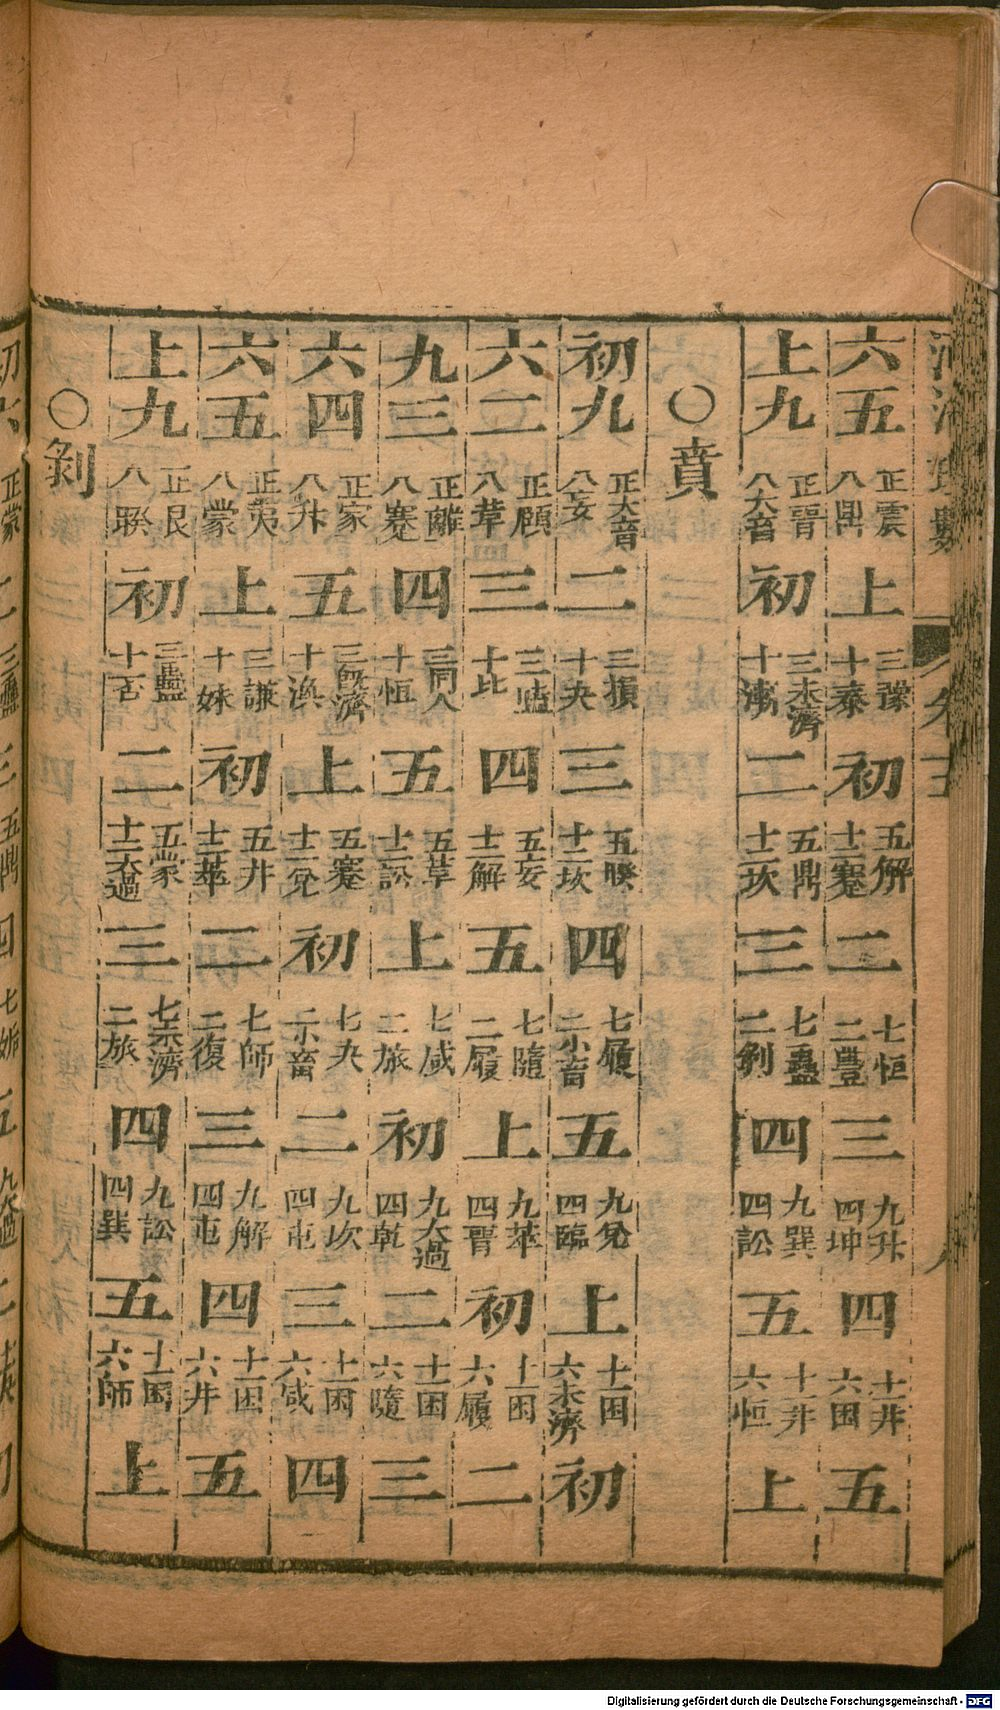 河洛理數
六五 正震 八鼎 上 三豫 十泰 初 五解 十二蹇 二 七恒 二豐 三 九升 四坤 四 十一井 六困 五
上九 正晉 八大畜 初 三未濟 十漸 二 五鼎 十二坎 三 七蠱 二剝 四 九巽 四訟 五 十一井 六恒 上
○賁
初九 正大畜 八妄 二 三損 十夬 三 五睽 十二坎 四 七履 二小畜 五 九兌 四臨 上 十一困 六未濟 初
六二 正頤 八革 三 三嗑 十比 四 五妄 十二解 五 七隨 二履 上 九萃 四晉 初 十一困 六履 二
九三 正離 八蹇 四 三同人 十恒 五 五革 十二訟 上 七咸 二旅 初 九大過 四乾 二 十一困 六隨 三
六四 正家 八升 五 三既濟 十渙 上 五蹇 十二兌 初 七夬 二小畜 二 九坎 四屯 三 十一困 六咸 四
六五 正夷 八蒙 上 三謙 十妹 初 五井 十二萃 二 七師 二復 三 九解 四屯 四 十一困 六井 五
上九 正艮 八睽 初 三蠱 十否 二 五蒙 十二大過 三 七未濟 二旅 四 九訟 四巽 五 十一困 六師 上
○剝
Digitalisierung gefördert durch die Deutsche Forschungsgemeinschaft - DFG